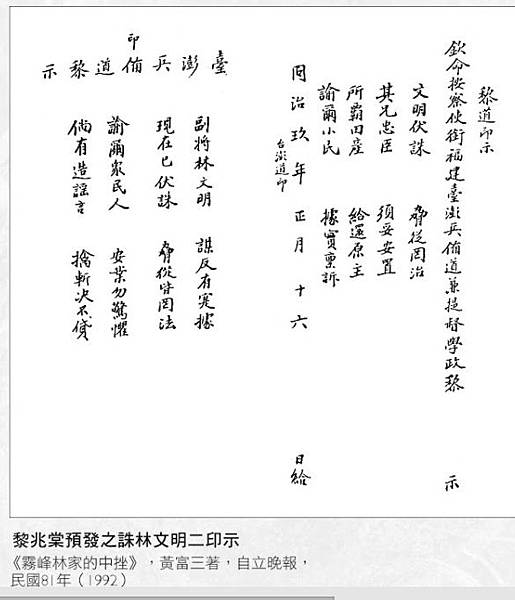 黎道印示
欽命按察使銜福建臺澎兵備道兼提督學政黎 示
文明伏誅 脅從罔治
其兄忠臣 須妥安置
所霸田產 給還原主
諭爾小民 據實稟訴
同治玖年正月十六 日給
台澎道印
印
臺澎兵備道黎示
副將林文明 謀反有寔據
現在已伏誅 脅從皆罔法
諭爾眾民人 安業勿驚懼
倘有造謠言 擒斬決不貸
黎兆棠預發之誅林文明二印示
《霧峰林家的中挫》，黃富三著，自立晚報，
民國81年（1992）